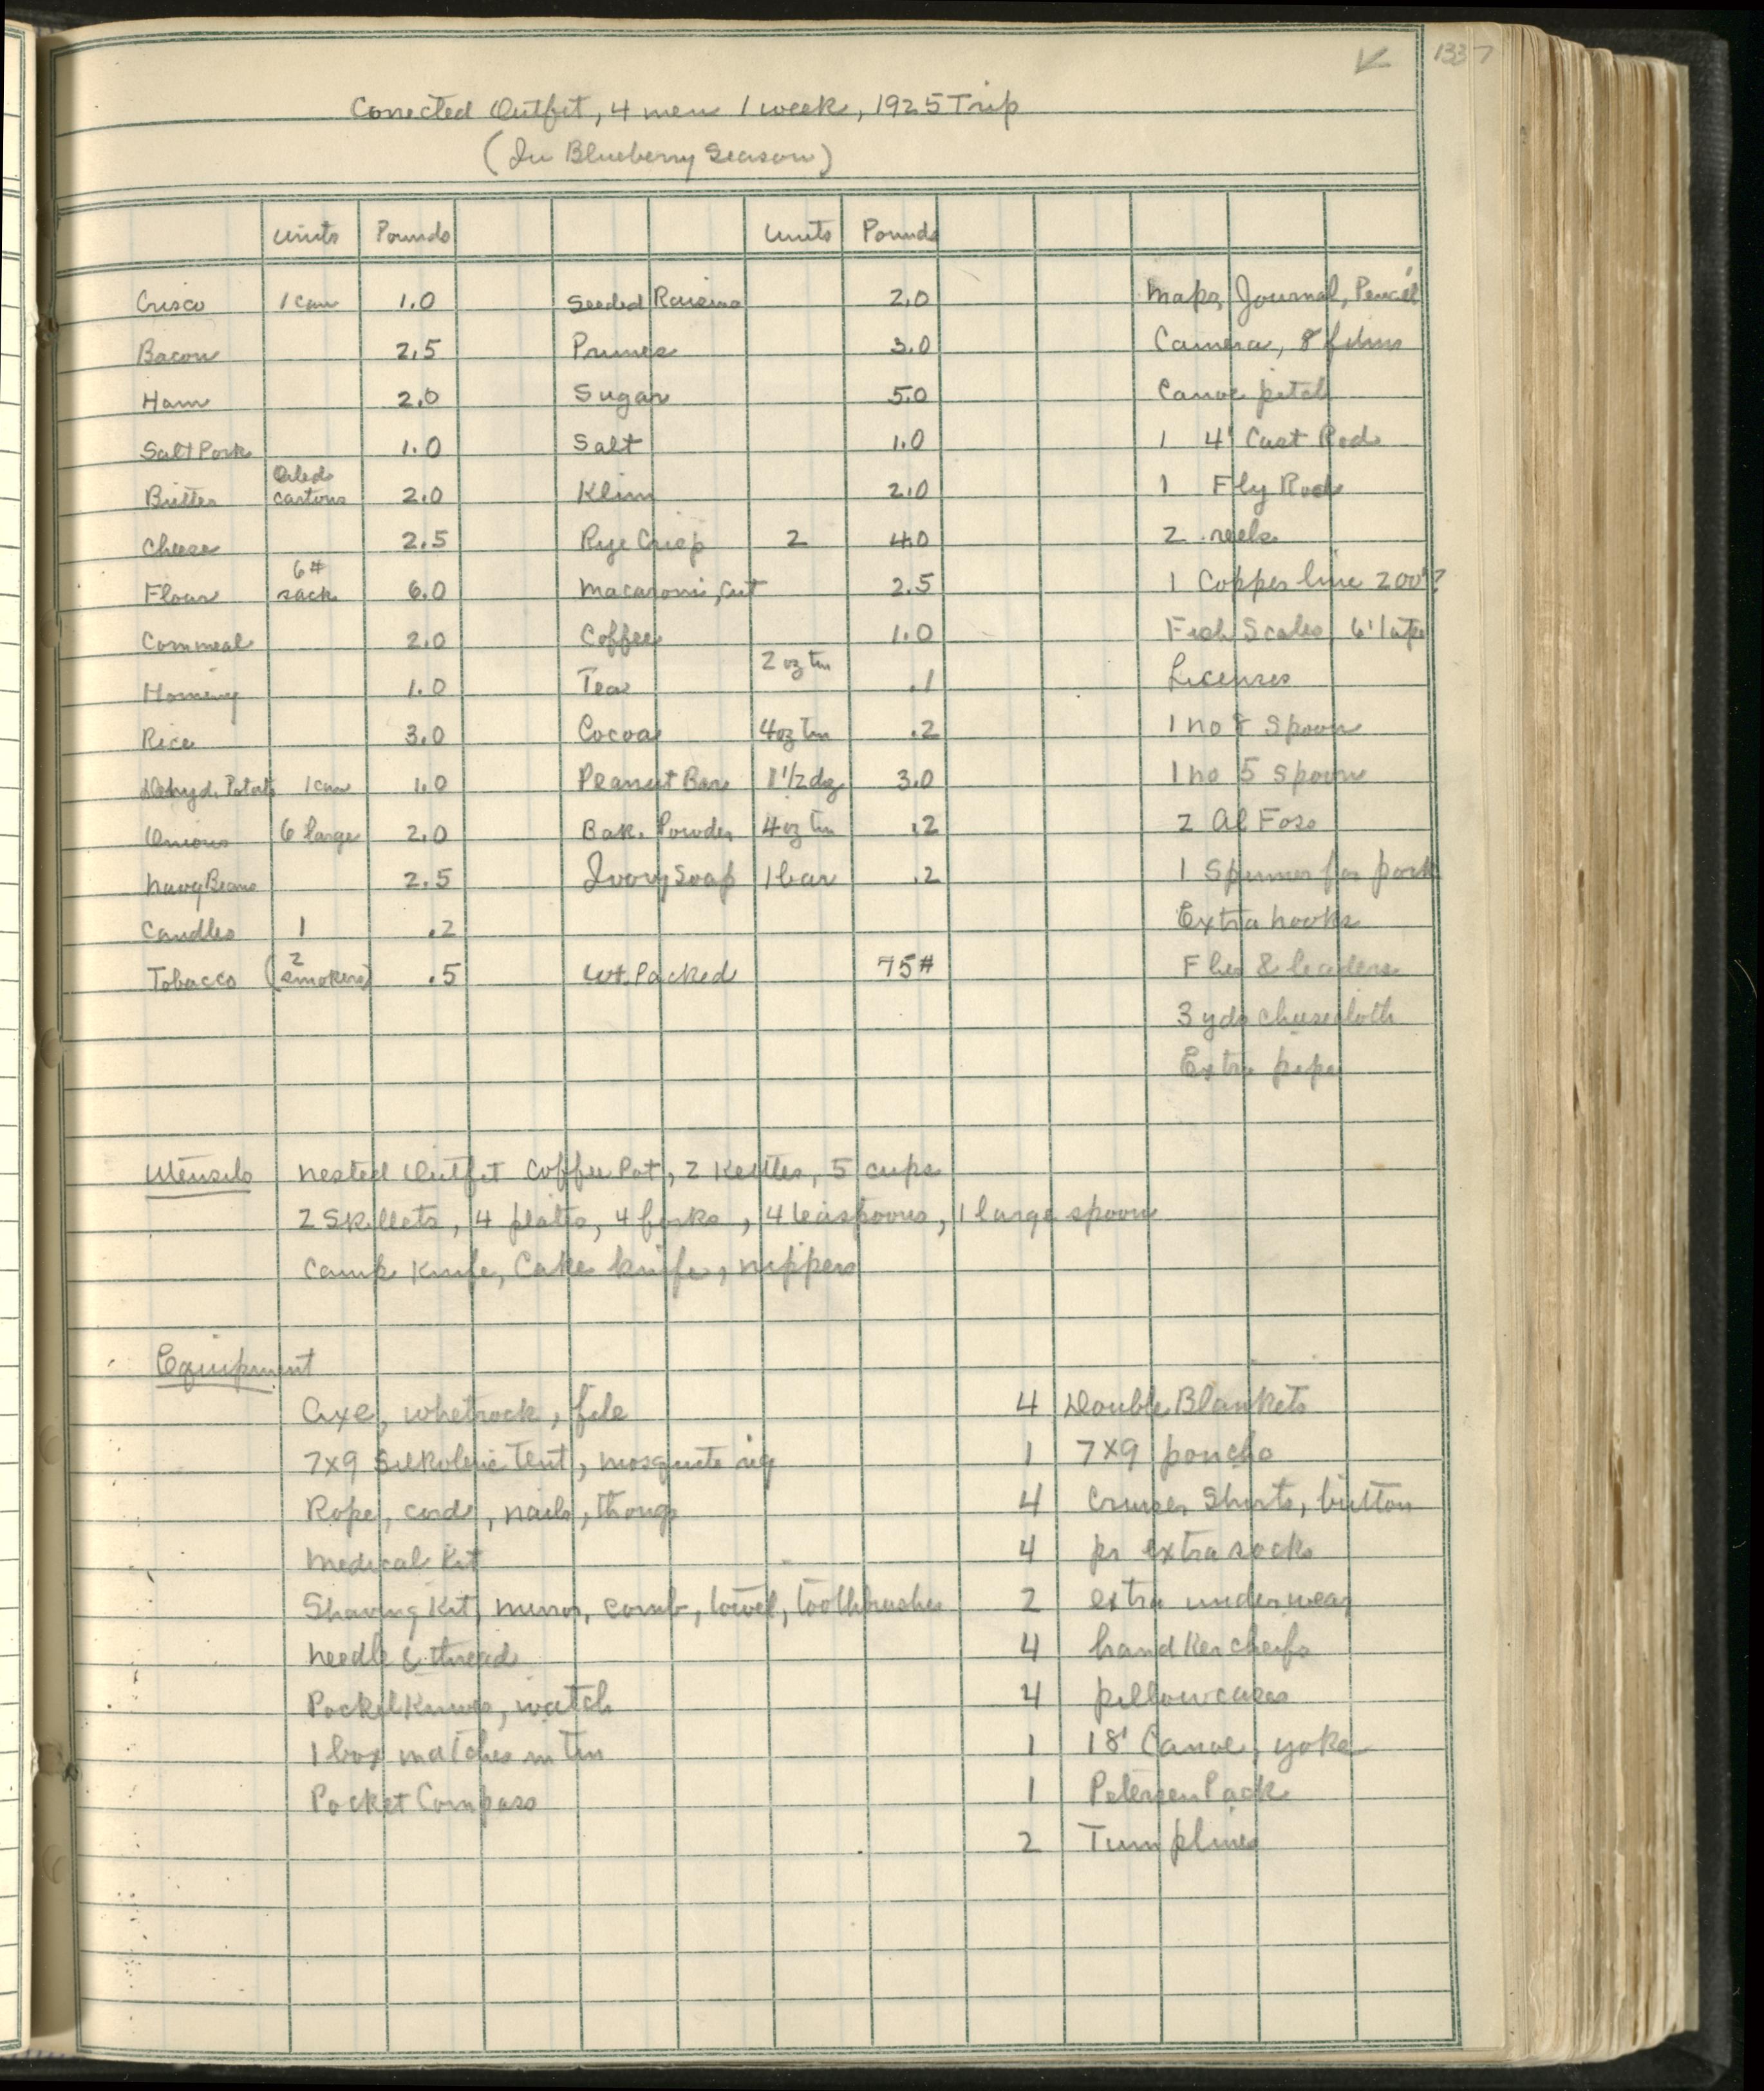 1337
Corrected Outfit, 4 men 1 week, 1925 Trip
(In Blueberry Season)
Units Pounds Units Pounds
Crisco 1 can 1.0 Seeded Raisins 2.0 Maps, Journal, Pencil
Bacon 2.5 Prunes 3.0 Camera, 8 films
Ham 2.0 Sugar 5.0 Canoe pitch
Salt Pork 1.0 Salt 1.0 1 4' Cast Rod
Butter Oiled cartons 2.0 Klim 2.0 1 Fly Rod
Cheese 2.5 Rye Crisp 2 4.0 2 reels
Flour 6# sack 6.0 Macaroni, Cut 2.5 1 Copper line 200'?
Cornmeal 2.0 Coffee 1.0 Fish Scales 6' tape
Hominy 1.0 Tea 2 oz tin .1 Licenses
Rice 3.0 Cocoa 4 oz tin .2 1 no 8 Spoon
Dehyd. Potato 1 can 1.0 Peanut Bars 1 1/2 dz 3.0 1 no 5 Spoon
Onions 6 large 2.0 Bak. Powder 4 oz tin .2 2 Al Foss
Navy Beans 2.5 Ivory Soap 1 bar .2 1 Spinner for pork
Candles 1 .2 Extra hooks
Tobacco (2 smokers) .5 Wt. Packed 75# Flies & leaders
3 yds cheesecloth
Extra pipe
Utensils Nested Outfit Coffee Pot, 2 Kettles, 5 cups
2 Skillets, 4 plates, 4 forks, 4 teaspoons, 1 large spoon
Camp Knife, Cake knife, nippers
Equipment
Axe, whetrock, file 4 Double Blankets
7x9 Silkolene Tent, mosquito rig 1 7x9 poncho
Rope, cord, nails, thongs 4 Cruiser Shirts, button
Medical Kit 4 pr extra socks
Shaving Kit, mirror, comb, towel, toothbrushes 2 extra underwear
Needle & thread 4 handkerchefs
Pocket Knives, watch 4 pillowcases
1 box matches in tin 1 18' Canoe, yoke
Pocket Compass 1 Petersen Pack
2 Tumplines